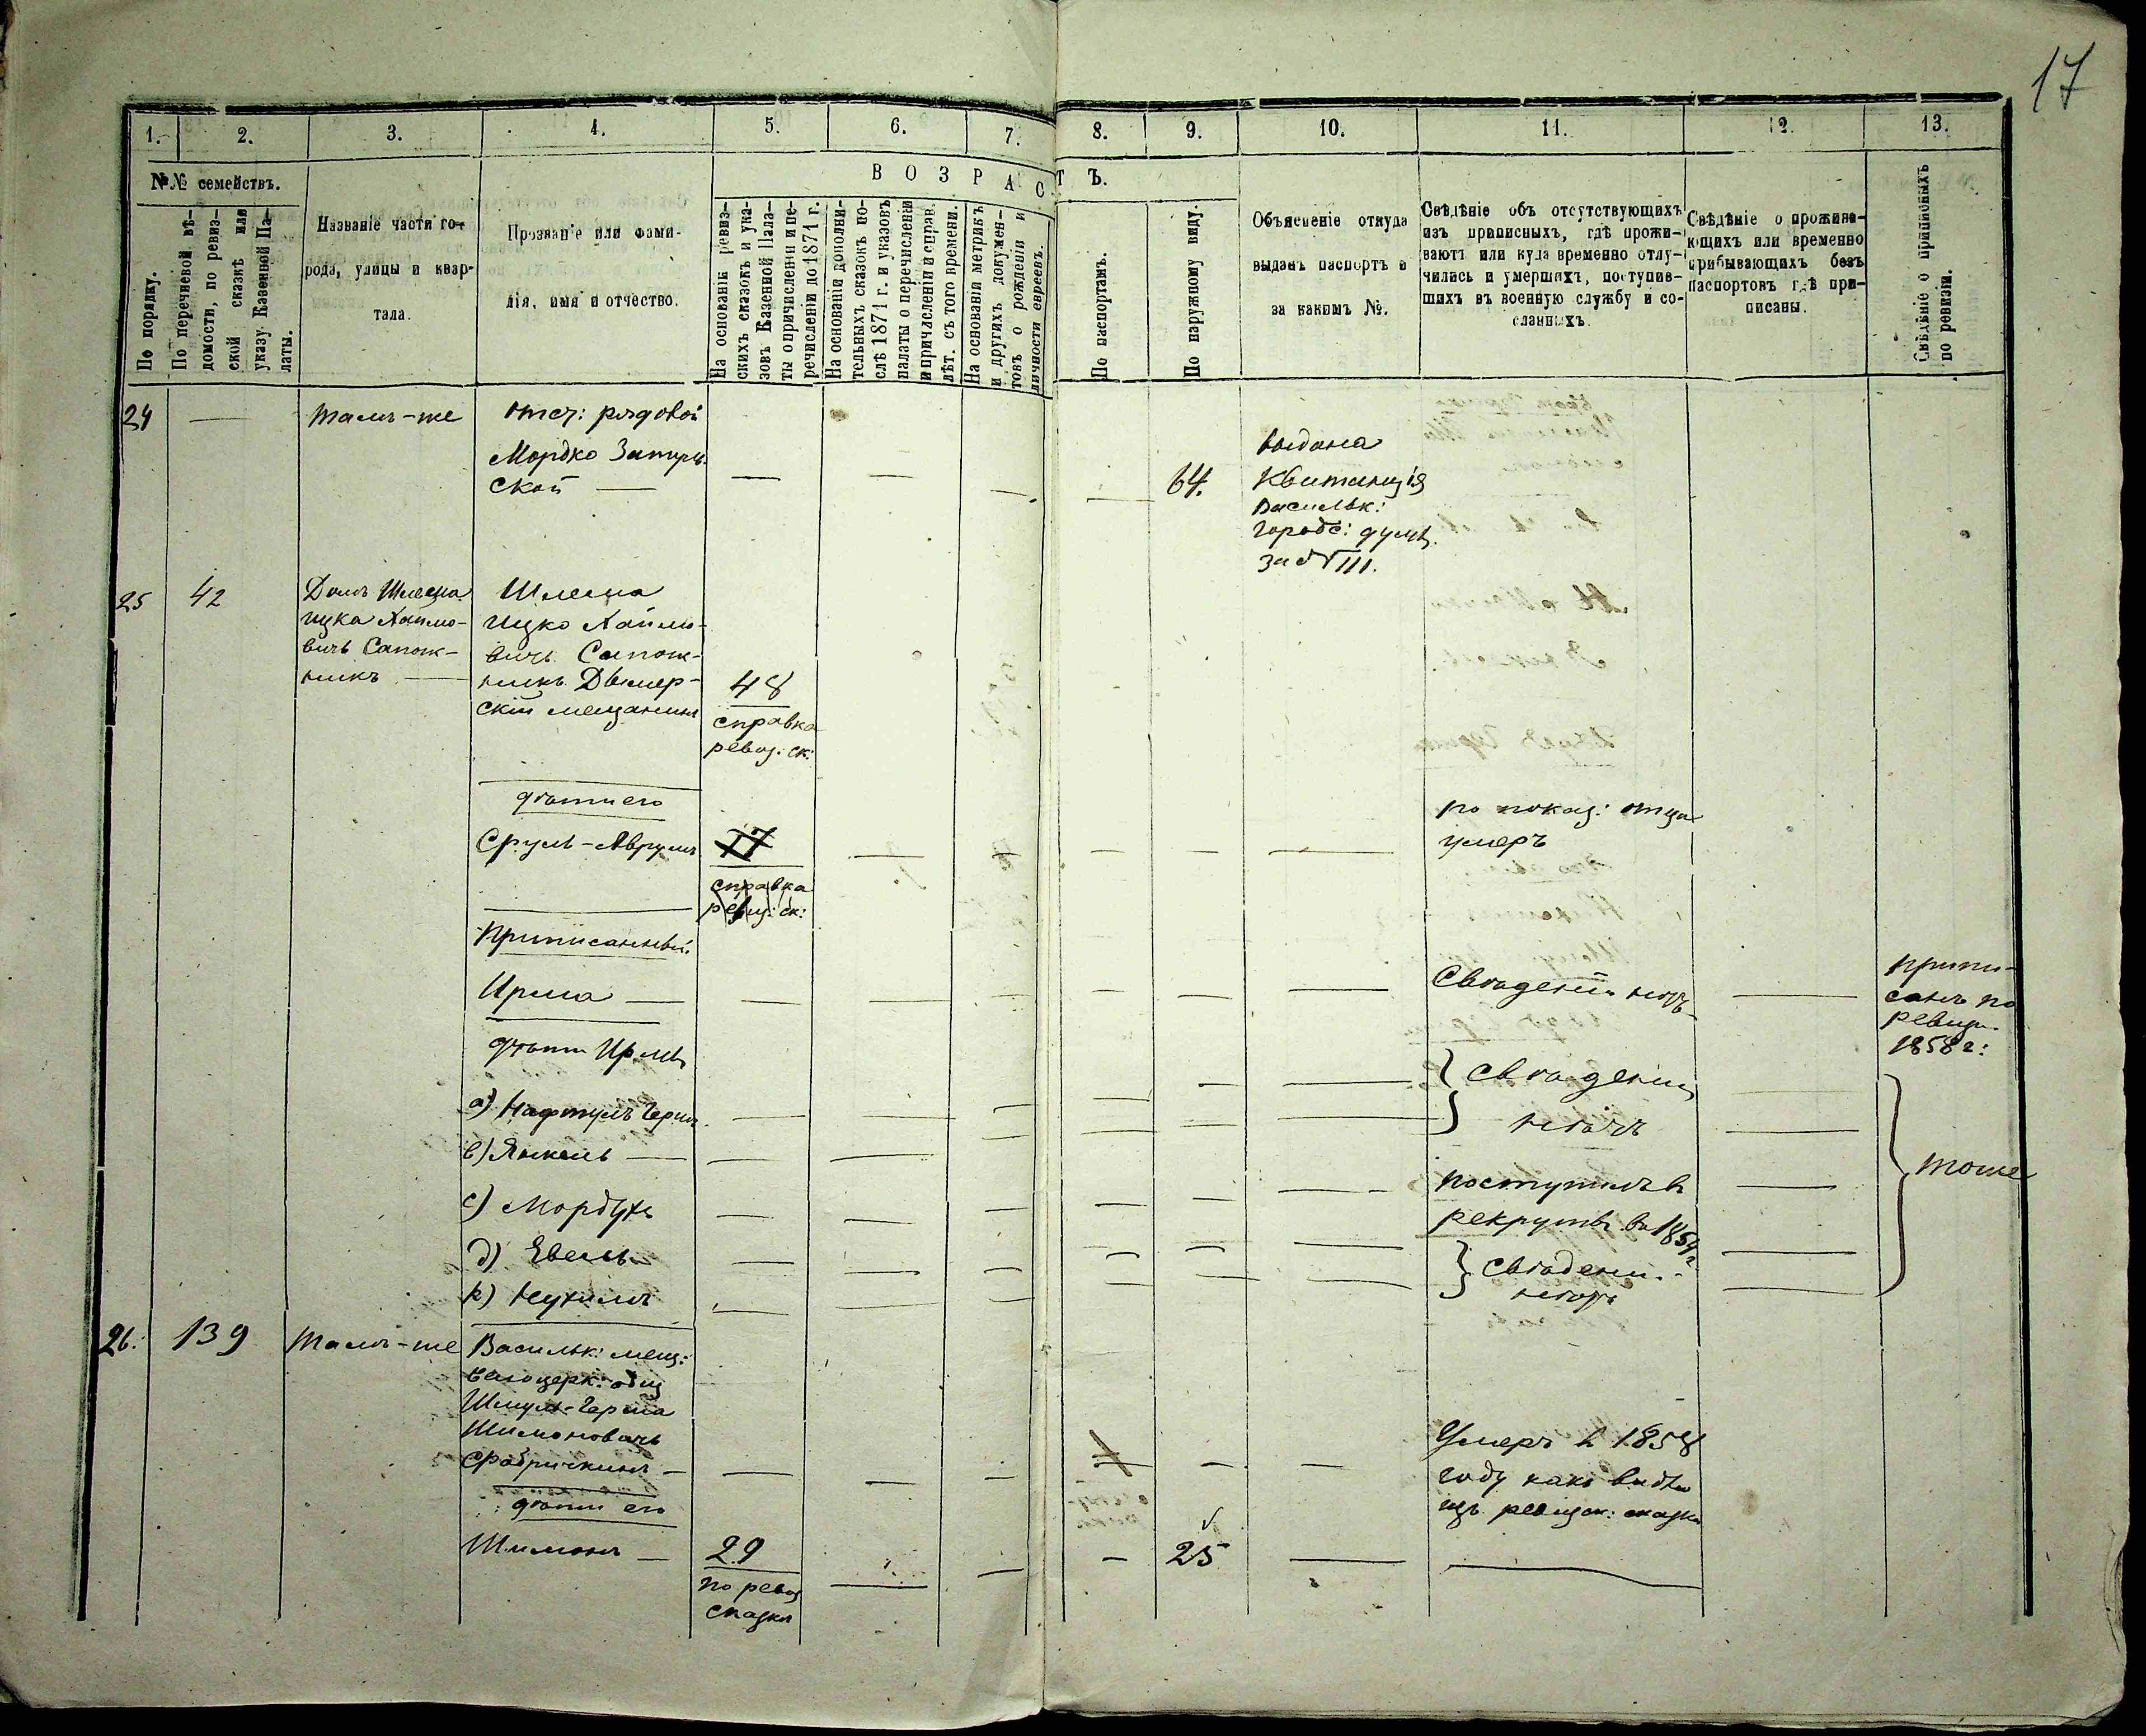 17
1. 2. 3. 4. 5. 6. 7. 8. 9. 10. 11. 12. 13.
№№ семействъ.
По порядку.
По перечневой вѣ-
домости, по ревиз-
ской сказкѣ или
указу Казенной Па-
латы.
Названіе части го-
рода, улицы и квар-
тала.
Прозваніе или фами-
лія, имя и отчество.
ВОЗРАСТЪ.
На основаніи ревиз-
скихъ сказокъ и ука-
зовъ Казенной Пала-
ты о причисленіи и пе-
речисленіи до 1871 г.
На основаніи дополни-
тельныхъ сказокъ по-
слѣ 1871 г. и указовъ
палаты о перечисленіи
и причисленіи и справ.
лѣт. съ того времени.
На основаніи метрикъ
и другихъ докумен-
товъ о рожденіи и
личности евреевъ.
По паспортамъ.
По наружному виду.
Объясненіе откуда
выданъ паспортъ и
за какимъ №.
Свѣдѣніе объ отсутствующихъ
изъ приписныхъ, гдѣ прожи-
ваютъ или куда временно отлу-
чились и умершихъ, поступив-
шихъ въ военную службу и со-
сланныхъ.
Свѣдѣніе о прожива-
ющихъ или временно
прибывающихъ безъ
паспортовъ гдѣ при-
писаны.
Свѣдѣніе о приписныхъ
по ревизіи.
24 — тамъ-же отст: рядовой
Мордко
ской —
64.
выдана
Квитанція
Васильк:
городс: думы
за № 111.
25 42
Домъ Шлема
Ицка Хаимо-
вичъ Сапож-
никъ —
Шлема
Ицко Хаимо-
вичъ Сапож-
никъ Дымер-
скій мещанинъ
48
справка
ревиз: ск:
дѣти его
Сруль-Аврумъ 17
справка
ревиз: ск:
по показ: отца
умеръ
Приписанный
Ирма —
Свѣдѣній нѣтъ
припи-
санъ по
ревизіи
1858 г:
дѣти Ирмы
а) Нафтулъ Герш.
в) Янкель —
Свѣдѣній
нѣтъ
с) Мордухъ
поступилъ въ
рекруты въ 1854 г
д) Евель
к) Нухимъ
Свѣдѣній
нѣтъ
тоже
26. 139 тамъ-же Васильк: мещ:
Белоцерк: общ
Шмуль-Герша
Шимоновичъ
Фабрикинъ —
Умеръ в 1858
году какъ видно
изъ ревизск: сказки
дѣти его
Шимонъ — 29
по ревиз
сказки
25